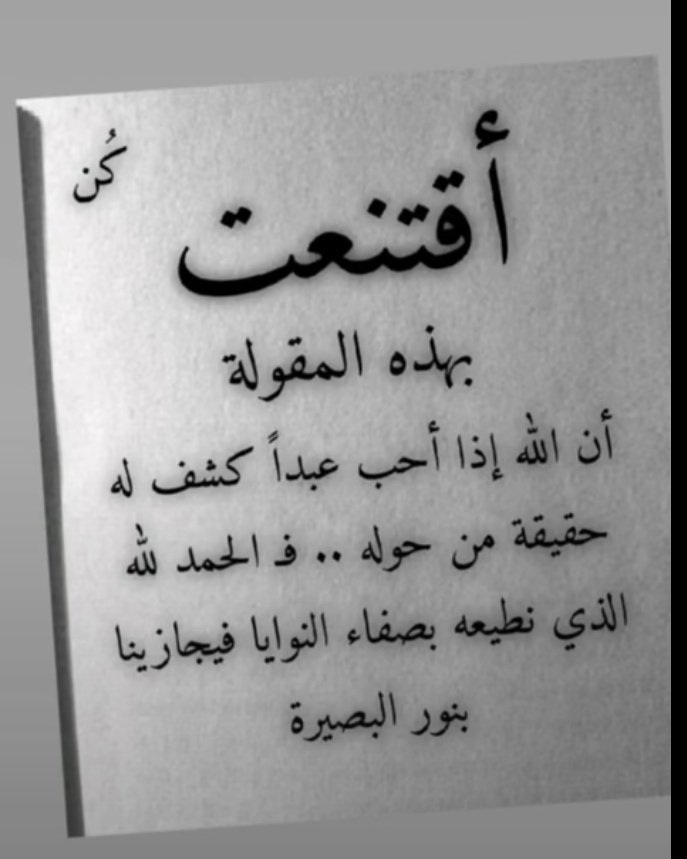 كُن
أقتنعت
بهذه المقولة
أن الله إذا أحب عبداً كشف له
حقيقة من حوله .. فـ الحمد لله
الذي نطيعه بصفاء النوايا فيجازينا
بنور البصيرة